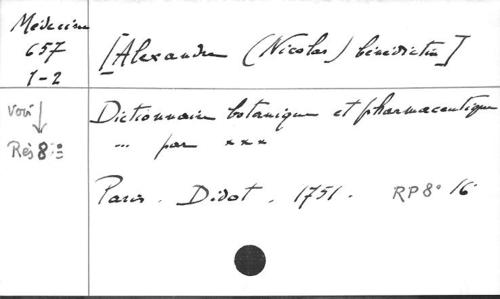 Médecine
657
1-2
[Alexandre (Nicolas) bénédictin]
Dictionnaire botanique et pharmaceutique
... par ***
voir
Rés 8°
Paris. Didot. 1751. RP 8° 16